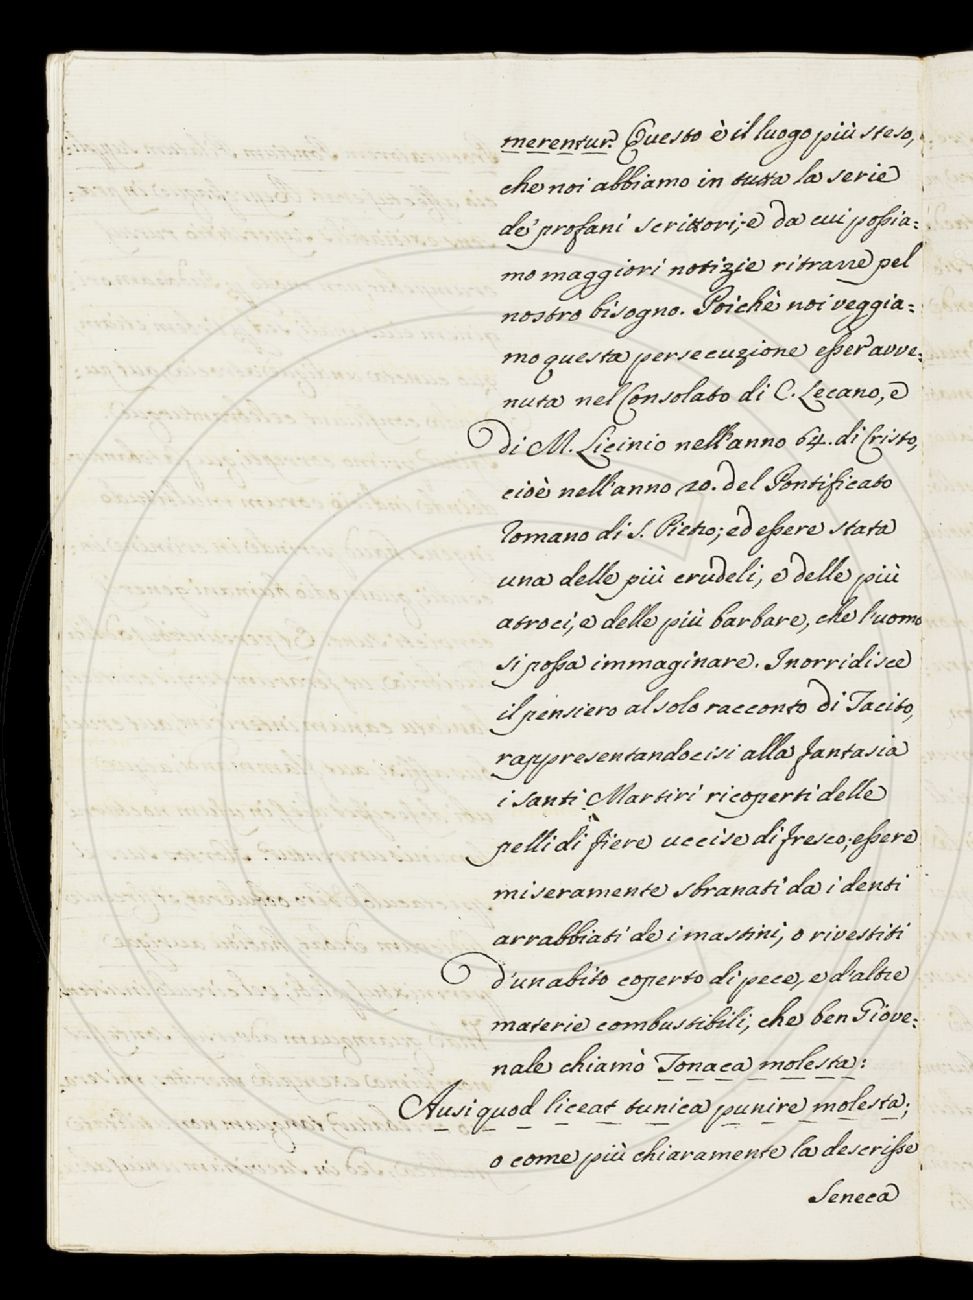 merentur. Questo è il luogo più steso,
che noi abbiamo in tutta la serie
de' profani scrittori; e da cui possia=
mo maggiori notizie ritrarre pel
nostro bisogno. Poichè noi veggia=
mo questa persecuzione esser avve=
nuta nel Consolato di C. Lecano, e
di M. Licinio nell'anno 64. di Cristo,
cioè nell'anno 20. del Pontificato
Romano di S. Pietro; ed essere stata
una delle più crudeli, e delle più
atroci, e delle più barbare, che l'uomo
si possa immaginare. Inorridisce
il pensiero al solo racconto di Tacito,
rappresentandocisi alla fantasia
i Santi Martiri ricoperti delle
pelli di fiere uccise di fresco, essere
miseramente sbranati da i denti
arrabbiati de i mastini, o rivestiti
d'un abito coperto di pece, e d'altre
materie combustibili, che ben Giove=
nale chiamò Tonaca molesta:
Ausi quod liceat tunica punire molesta;
o come più chiaramente la descrisse
Seneca